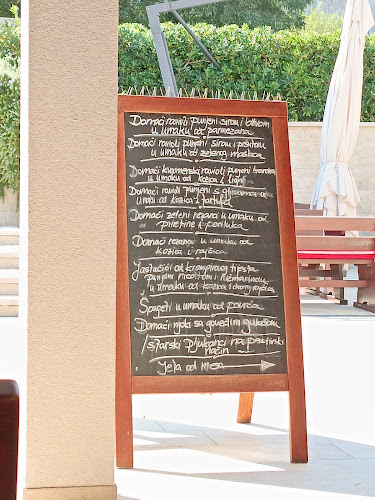 Domaći ravioli punjeni sirom i blitvom
u umaku od parmezana
Domaći ravioli punjeni sirom i pršutom
u umaku od zelenog maslaca
Domaći ravioli punjeni
u umaku od kozica i
Domaći ravioli punjeni s
umaku od kozica i tartufa
Domaći zeleni rezanci u umaku od
piletine i poriluka
Domaći rezanci u umaku od
kozica i rajčica
Jastučići od krompirovog tijesta
punjeni ricottom i
u umaku od kozica i cherry rajčica
Špageti u umaku od povrća
Domaći njoki sa goveđim gulašom
Istarski pljukanci na
način
Jela od mesa →